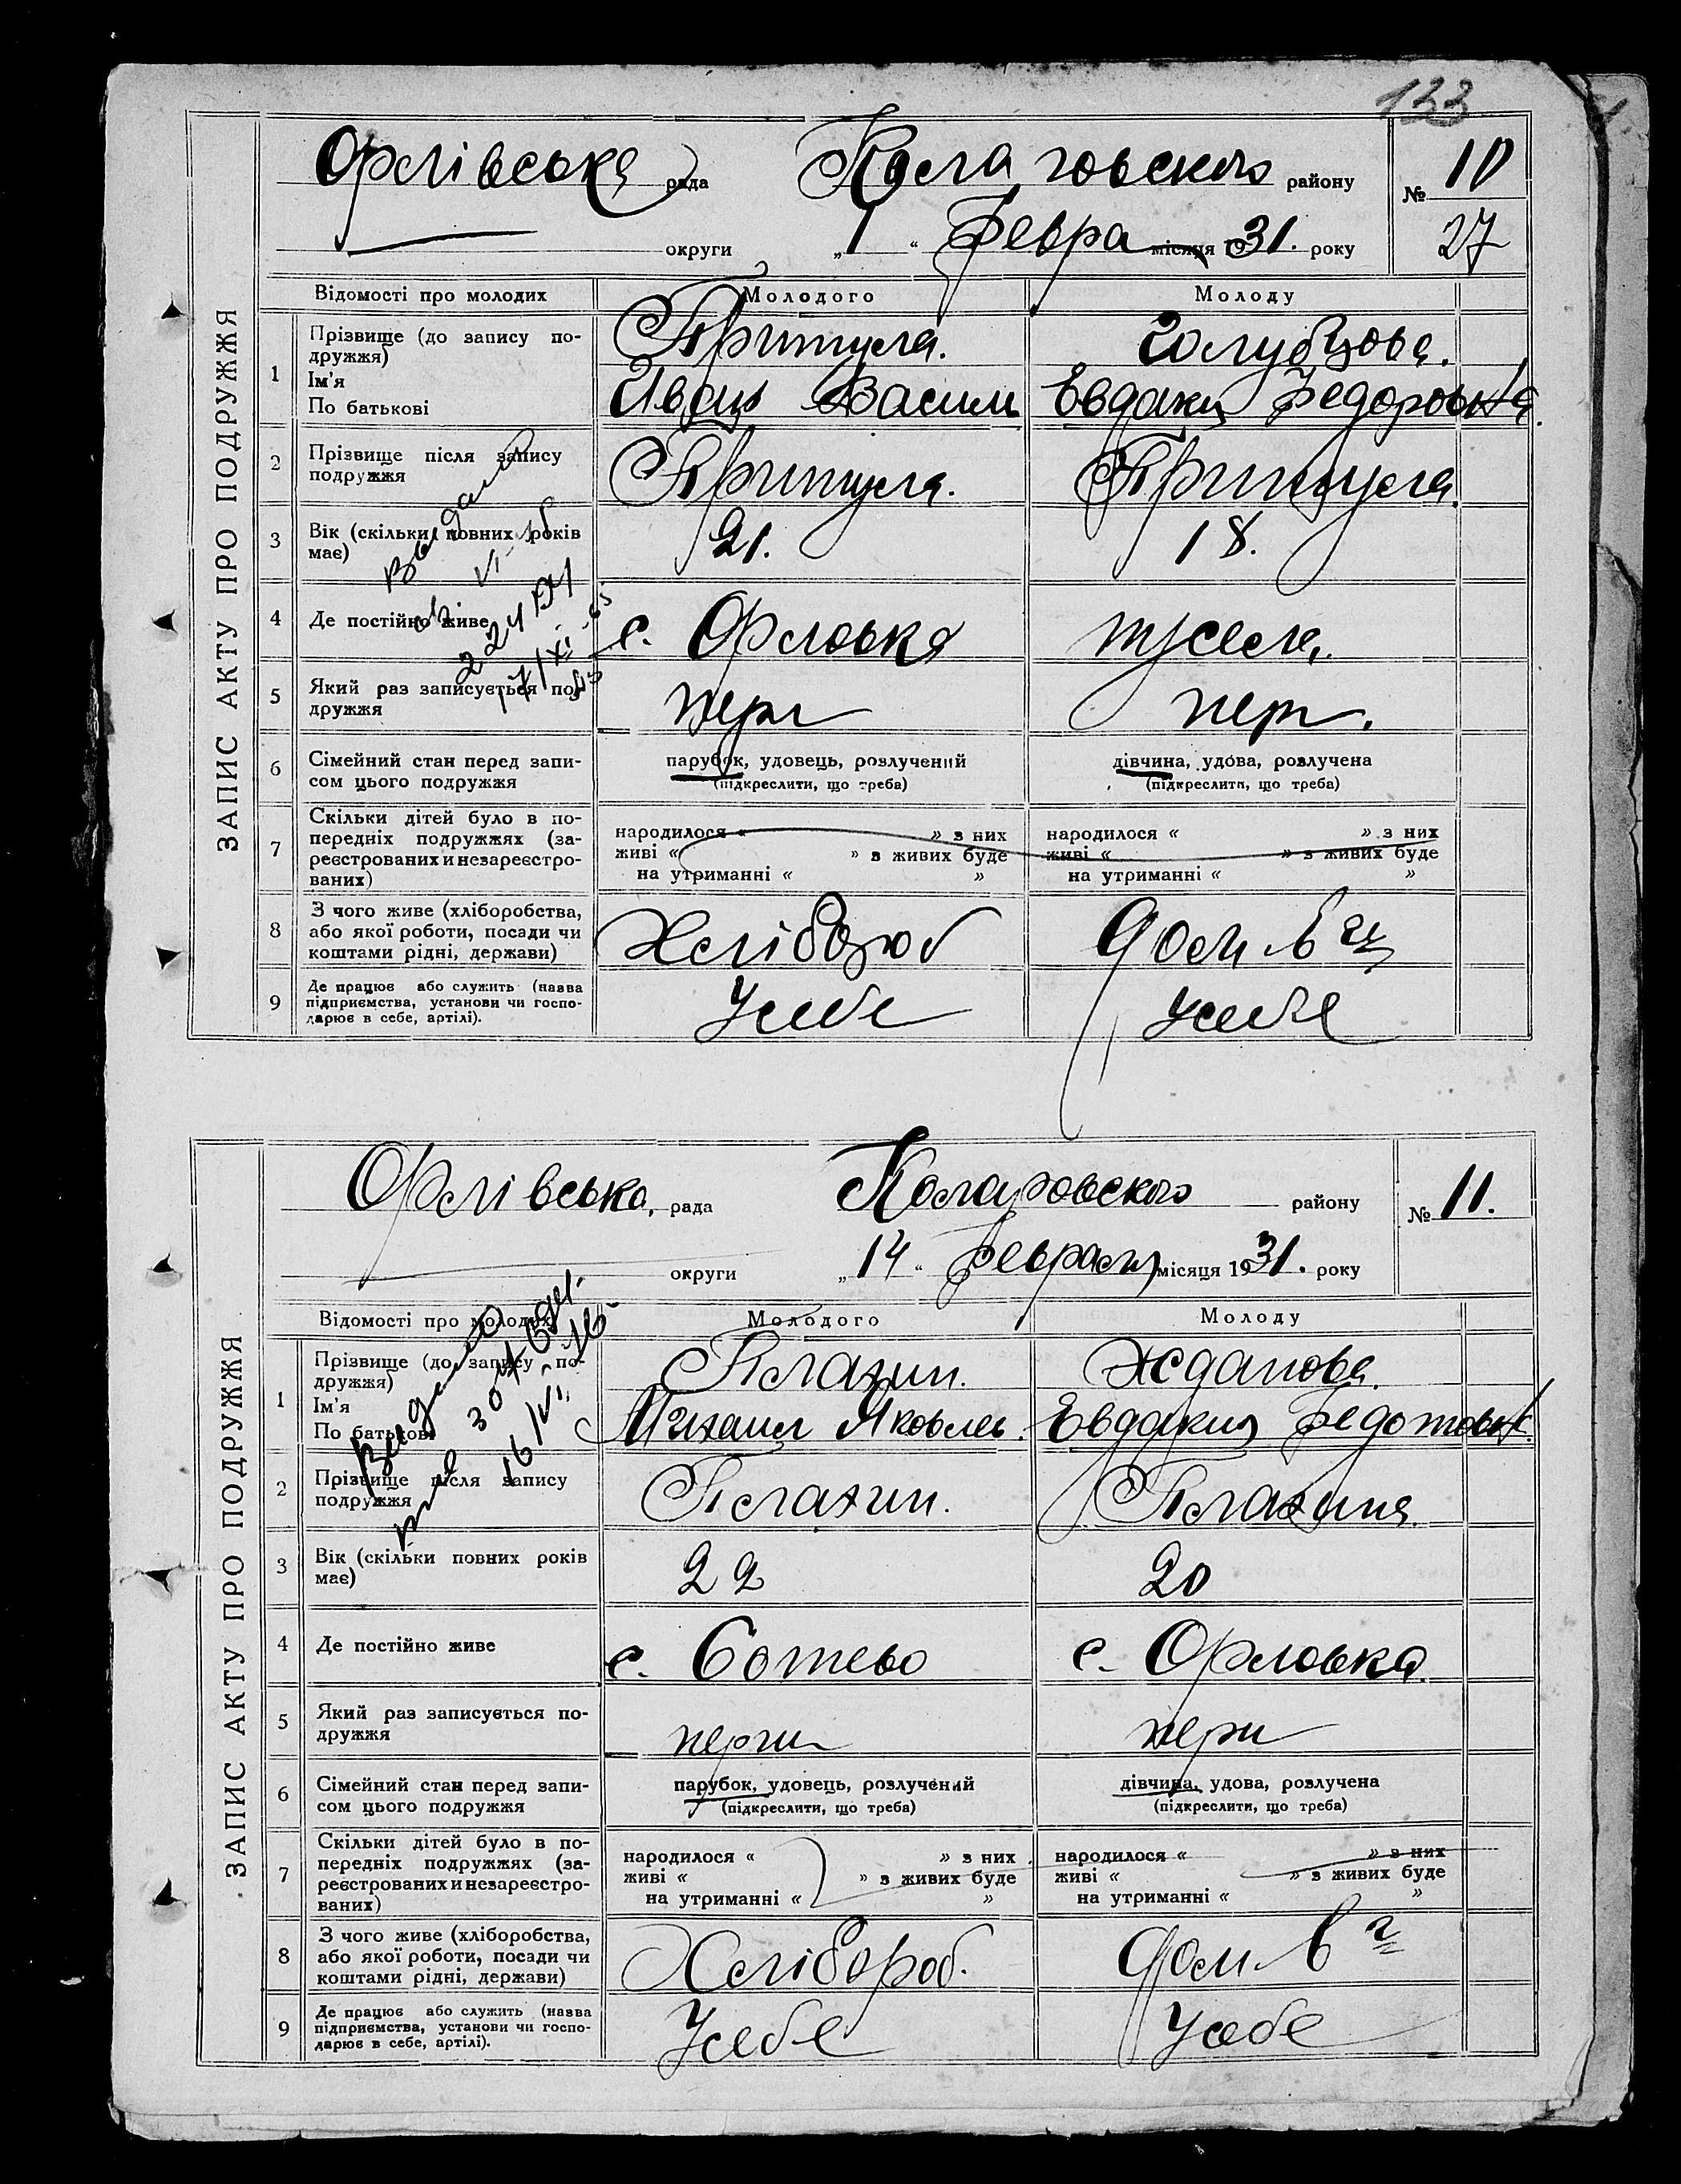 133
Орлівська рада Коларовского району № 10
округи „1“ Февра місяця 1931. року 27
ЗАПИС АКТУ ПРО ПОДРУЖЖЯ
Відомості про молодих Молодого Молоду
1 Прізвище (до запису по-
дружжя) Притула. Голубцова.
Ім'я
По батькові Иван Васили Евдаки Федоровна
2 Прізвище після запису
подружжя Притула. Притула.
3 Вік (скільки повних років
має) 21. 18.
4 Де постійно живе с. Орловка
5 Який раз записується по-
дружжя перш перш.
6 Сімейний стан перед запи-
сом цього подружжя
парубок, удовець, розлучений
(підкреслити, що треба)
дівчина, удова, розлучена
(підкреслити, що треба)
7 Скільки дітей було в по-
передніх подружжях (за-
реєстрованих и незареєстро-
ваних)
народилося « » з них
живі « » з живих буде
на утриманні « »
народилося « » з них
живі « » з живих буде
на утриманні « »
8 З чого живе (хліборобства,
або якої роботи, посади чи
коштами рідні, держави) Хлібороб
9 Де працює або служить (назва
підприємства, установи чи госпо-
дарює в себе, артілі). Усебе усебе
Орлівська рада Коларовского району № 11.
округи „14“ Февраля місяця 1931. року
ЗАПИС АКТУ ПРО ПОДРУЖЖЯ
Відомості про молодих Молодого Молоду
1 Прізвище (до запису по-
дружжя) Плахин. Жданова.
Ім'я
По батькові Михаил Яковлев. Евдакия Федотовн.
2 Прізвище після запису
подружжя Плахин. Плахина.
3 Вік (скільки повних років
має) 22 20
4 Де постійно живе с. Ботево с. Орловка.
5 Який раз записується по-
дружжя перши перш
6 Сімейний стан перед запи-
сом цього подружжя
парубок, удовець, розлучений
(підкреслити, що треба)
дівчина, удова, розлучена
(підкреслити, що треба)
7 Скільки дітей було в по-
передніх подружжях (за-
реєстрованих и незареєстро-
ваних)
народилося « » з них
живі « » з живих буде
на утриманні « »
народилося « » з них
живі « » з живих буде
на утриманні « »
8 З чого живе (хліборобства,
або якої роботи, посади чи
коштами рідні, держави) Хлібороб.
9 Де працює або служить (назва
підприємства, установи чи госпо-
дарює в себе, артілі). Усебе Усебе